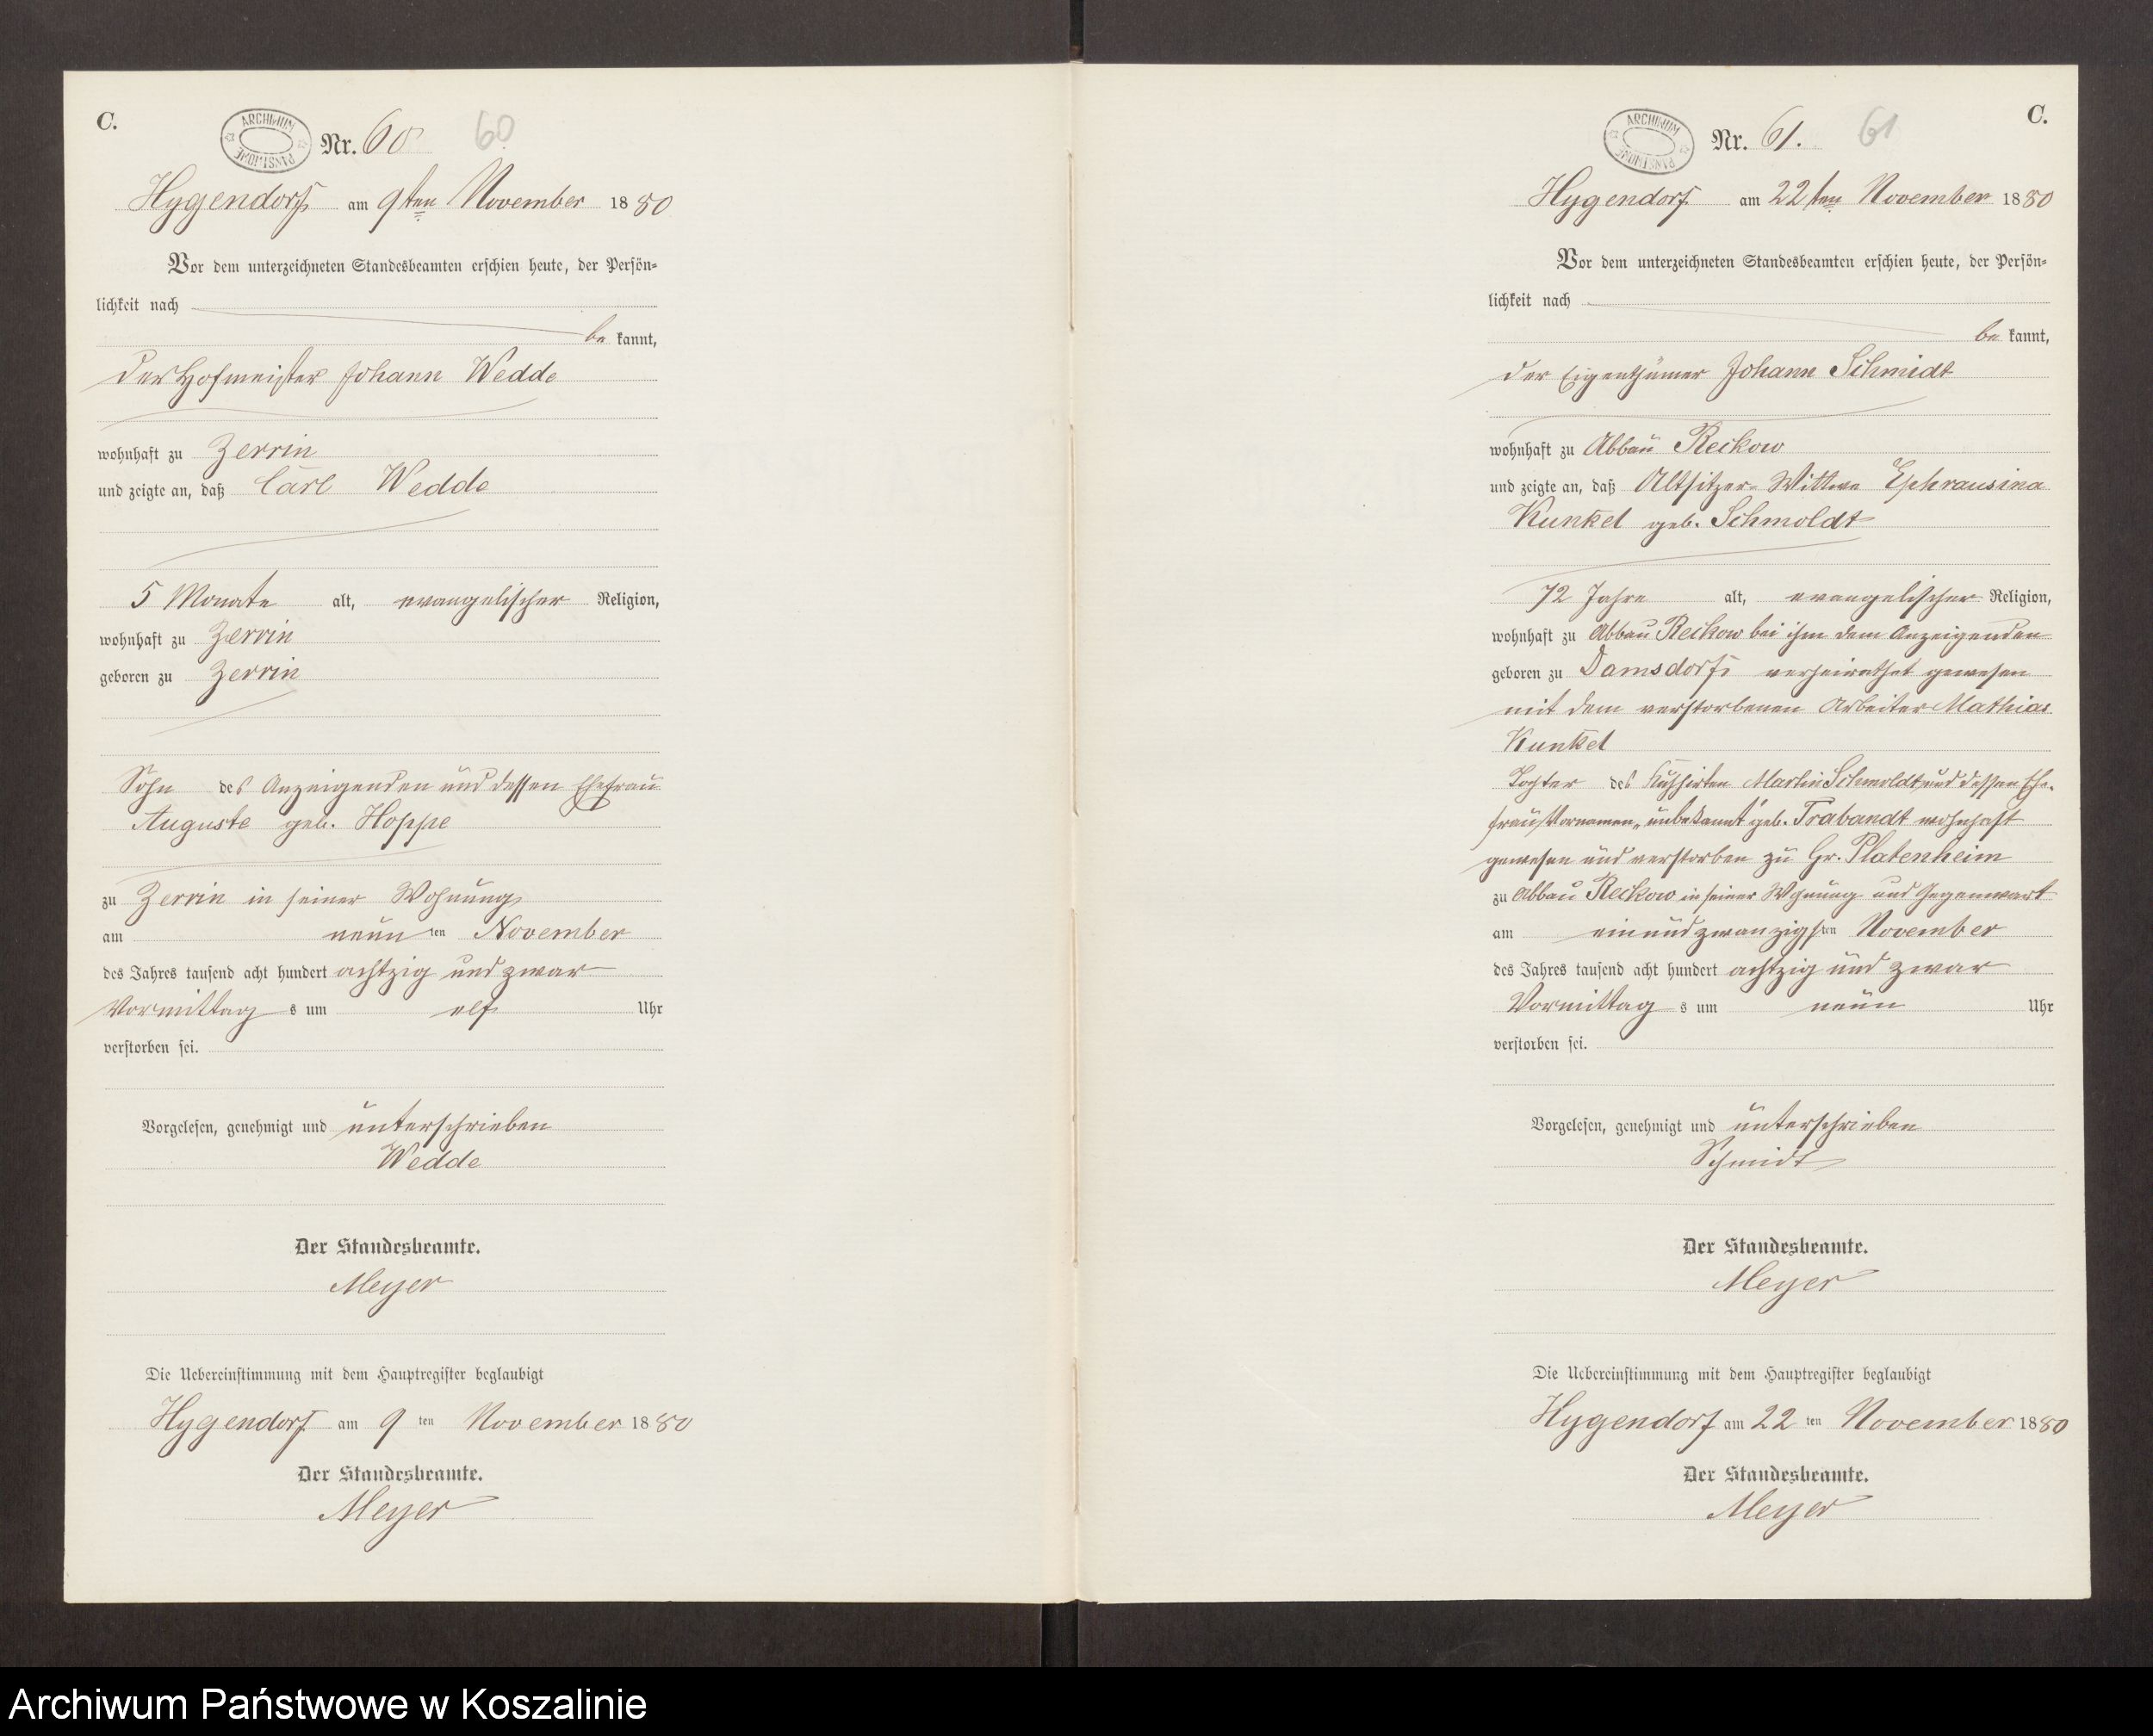 C.
ARCHIWUM PAŃSTWOWE
Nr. 60 60
Hygendorf am 9ten November 1880
Vor dem unterzeichneten Standesbeamten erschien heute, der Persön-
lichkeit nach
be kannt,
der Hofmeister Johann Wedde
wohnhaft zu Zerrin
und zeigte an, daß Carl Wedde
5 Monate alt, evangelischer Religion,
wohnhaft zu Zerrin
geboren zu Zerrin
Sohn des Anzeigenden und dessen Ehefrau
Auguste geb. Hoppe
zu Zerrin in seiner Wohnung
am neun ten November
des Jahres tausend acht hundert achtzig und zwar
Vormittag s um elf Uhr
verstorben sei.
Vorgelesen, genehmigt und unterschrieben
Wedde
Der Standesbeamte.
Meyer
Die Uebereinstimmung mit dem Hauptregister beglaubigt
Hygendorf am 9 ten November 1880
Der Standesbeamte.
Meyer
C.
ARCHIWUM PAŃSTWOWE
Nr. 61. 61
Hygendorf am 22ten November 1880
Vor dem unterzeichneten Standesbeamten erschien heute, der Persön-
lichkeit nach
be kannt,
der Eigenthümer Johann Schmidt
wohnhaft zu Abbau Reckow
und zeigte an, daß Altsitzer-Wittwe Ephrausina
Kunkel geb. Schmoldt
72 Jahre alt, evangelischer Religion,
wohnhaft zu Abbau Reckow bei ihm dem Anzeigenden
geboren zu Damsdorf verheirathet gewesen
mit dem verstorbenen Arbeiter Mathias
Kunkel
Tochter des Kuhhirten Martin Schmoldt und dessen Ehe-
frau Vornamen „unbekannt" geb. Trabandt wohnhaft
gewesen und verstorben zu Gr. Platenheim
zu Abbau Reckow in seiner Wohnung und Gegenwart
am einundzwanzigsten November
des Jahres tausend acht hundert achtzig und zwar
Vormittag s um neun Uhr
verstorben sei.
Vorgelesen, genehmigt und unterschrieben
Schmidt
Der Standesbeamte.
Meyer
Die Uebereinstimmung mit dem Hauptregister beglaubigt
Hygendorf am 22 ten November 1880
Der Standesbeamte.
Meyer
Archiwum Państwowe w Koszalinie